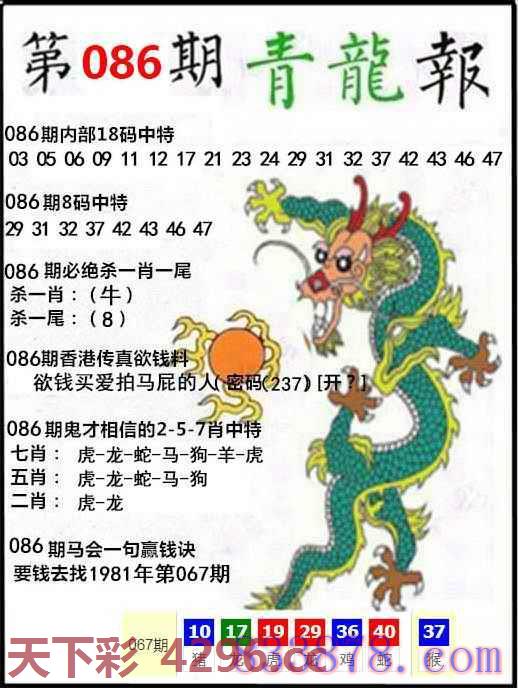 第086期青龍報
086期内部18码中特
03 05 06 09 11 12 17 21 23 24 29 31 32 37 42 43 46 47
086期8码中特
29 31 32 37 42 43 46 47
086期必绝杀一肖一尾
杀一肖：(牛)
杀一尾：(8)
086期香港传真欲钱料
欲钱买爱拍马屁的人(密码(237)[开?]
086期鬼才相信的2-5-7肖中特
七肖： 虎-龙-蛇-马-狗-羊-虎
五肖： 虎-龙-蛇-马-狗
二肖： 虎-龙
086期马会一句赢钱诀
要钱去找1981年第067期
067期 10 17 19 29 36 40 37
猪 龙 虎 龙 鸡 蛇 猴
天下彩